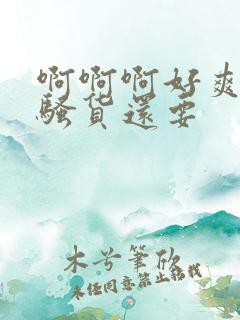 啊啊啊好爽
骚货还要
木兮笔欣
未经同意禁止转载